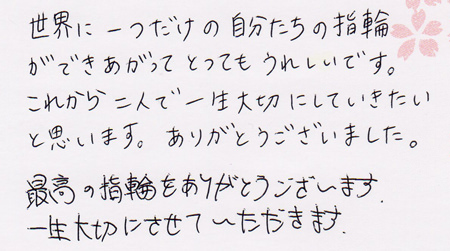 世界に一つだけの自分たちの指輪
ができあがってとってもうれしいです。
これから二人で一生大切にしていきたい
と思います。ありがとうございました。
最高の指輪をありがとうございます.
一生大切にさせていただきます.